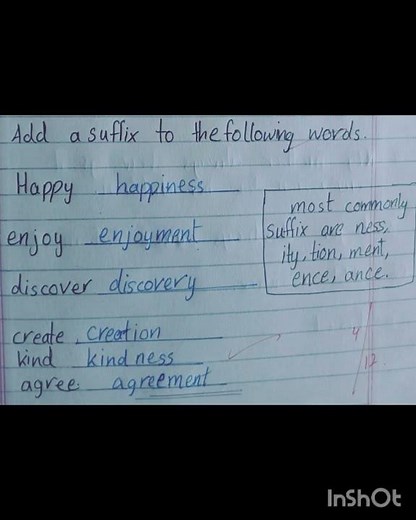 Add a suffix to the following words.
Happy happiness
enjoy enjoyment
discover discovery
most commonly
suffix are ness,
ity, tion, ment,
ence, ance.
create creation
kind kindness
agree agreement
4
12
InShOt